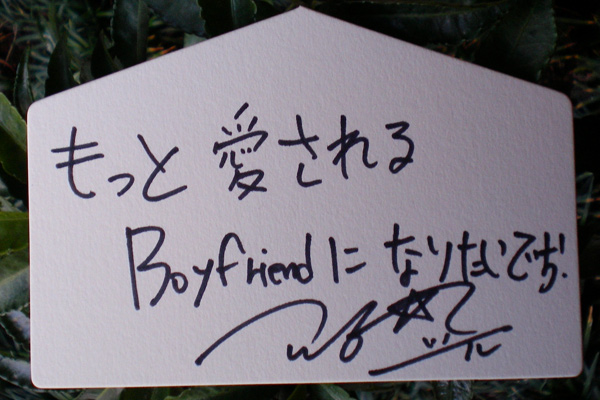 もっと 愛される
Boyfriendに なりたいです!